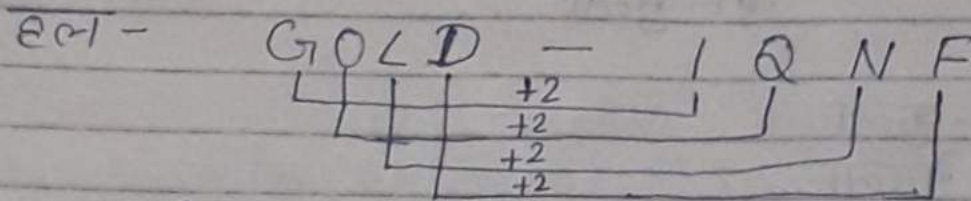 हल - GOLD - IQNF
+2
+2
+2
+2